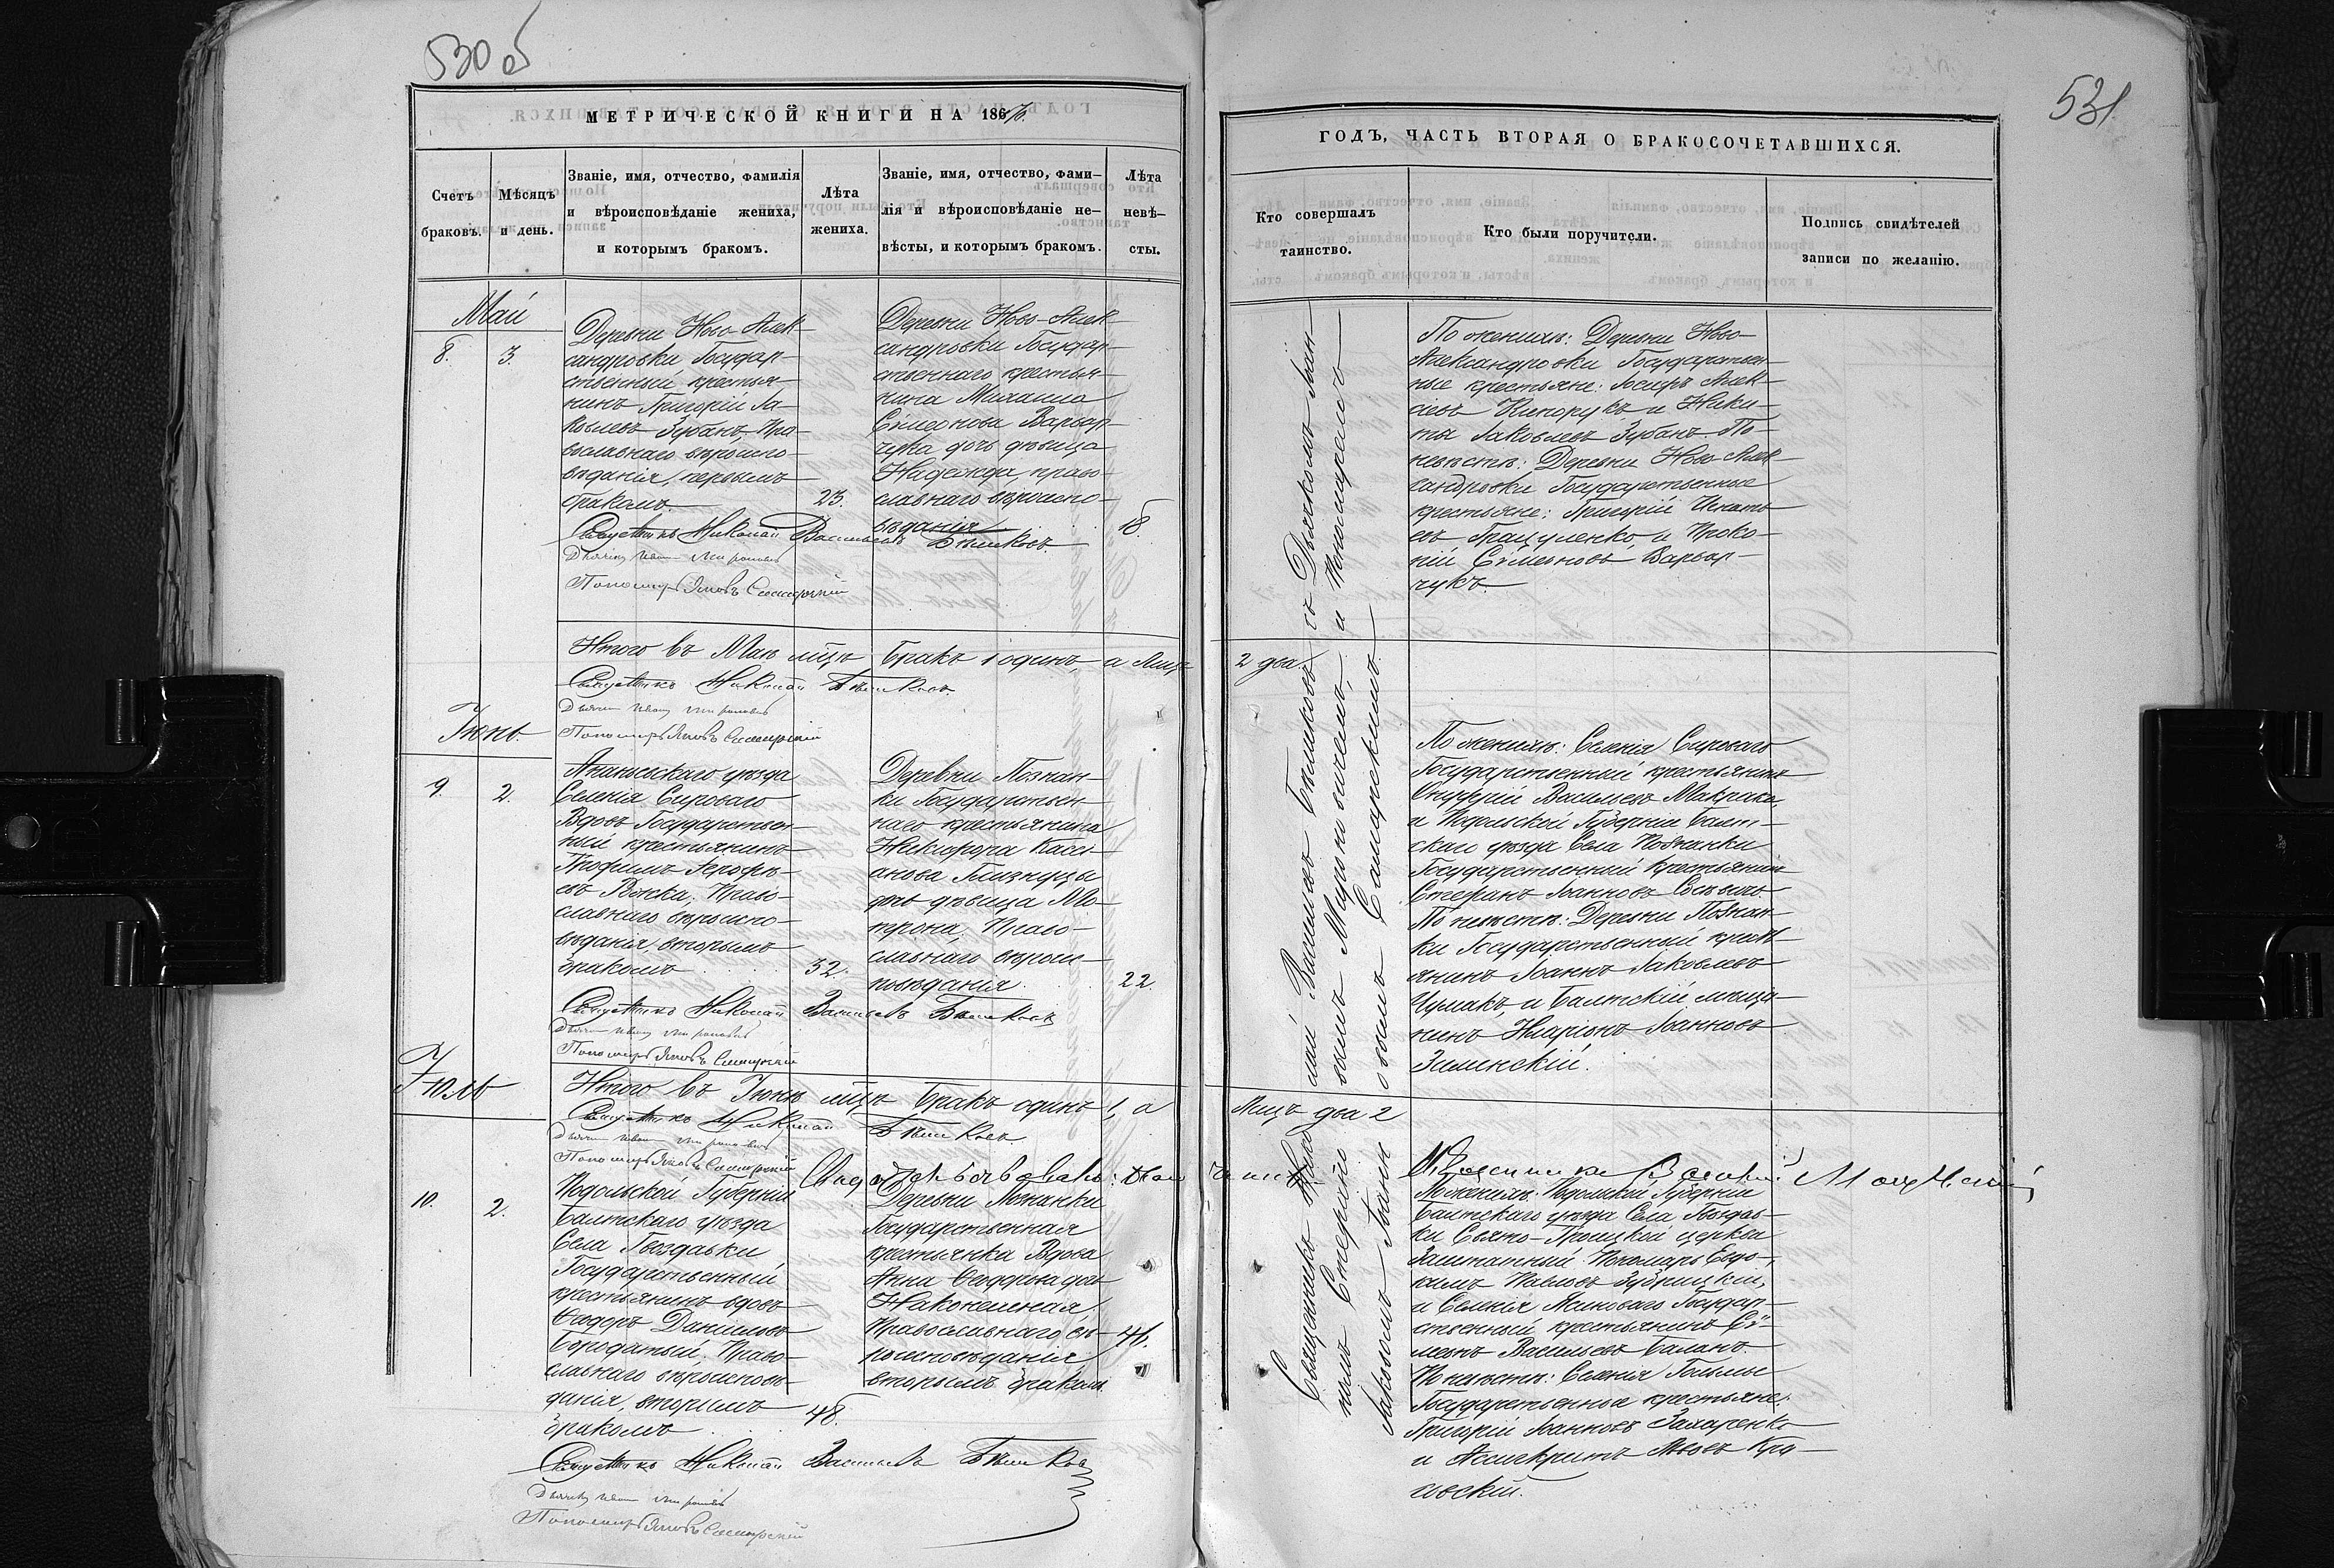 530 об
МЕТРИЧЕСКОЙ КНИГИ НА 1866.
Счетъ браковъ.
Мѣсяцъ и день.
Званіе, имя, отчество, фамилія
и вѣроисповѣданіе жениха,
и которымъ бракомъ.
Лѣта
жениха.
Званіе, имя, отчество, фами-
лія и вѣроисповѣданіе не-
вѣсты, и которымъ бракомъ.
Лѣта
невѣ-
сты.
Май
8.
3.
Деревни Ново-Алек-
сандровки Государ-
ственный крестья-
нинъ Григорій Іа-
ковлевъ Зубанъ, Пра-
вославнаго вѣроиспо-
вѣданія, первымъ
бракомъ
23.
Деревни Ново-Алек-
сандровки Государ-
ственнаго крестья-
нина Михаила
Симеонова Варвар-
чука дочь дѣвица
Надежда, право-
славнаго вѣроиспо-
вѣданія
18.
Священникъ Николай Васильевъ Бѣликовъ.
Дьячекъ Иванъ
Пономарь Яковъ Самарскій
Итого въ Маѣ м̃цѣ бракъ 1 одинъ, а лицъ
Священникъ Николай Бѣликовъ.
Дьячекъ Иванъ
Пономарь Яковъ Самарскій
Іюнь
9.
2.
Ананьевскаго уѣзда
Селенія Сироваго
Вдовъ Государствен-
ный крестьянинъ
Трофимъ Іерофѣ-
евъ Рѣжка, Право-
славнаго вѣроиспо-
вѣданія, вторымъ
бракомъ
32.
Деревни Познан-
ки Государствен-
наго крестьянина
Никифора Касси-
анова Близнуцы
дочь дѣвица Мо-
трона, Право-
славнаго вѣроис-
повѣданія.
22.
Священникъ Николай Васильевъ Бѣликовъ
Дьячекъ Иванъ
Пономарь Яковъ Самарскій
Іюль
Итого въ Іюнѣ м̃цѣ бракъ одинъ 1, а
Священникъ Николай Бѣликовъ
Дьячекъ Иванъ
Пономарь Яковъ Самарскій
Свидѣтельствовалъ:
10.
2.
Подольской Губерніи
Балтскаго уѣзда
Села Гвоздавки
Государственный
крестьянинъ вдовъ
Ѳеодоръ Даниловъ
Бородатый, Право-
славнаго вѣроисповѣ-
данія, вторымъ
бракомъ
48.
Деревни Познанки
Государственная
крестьянка Вдова
Анна Ѳеодорова дочь
Наконешная
Православнаго вѣ-
роисповѣданія,
вторымъ бракомъ
46.
Священникъ Николай Васильевъ Бѣликовъ
Дьячекъ Иванъ
Пономарь Яковъ Самарскій
531.
ГОДЪ, ЧАСТЬ ВТОРАЯ О БРАКОСОЧЕТАВШИХСЯ.
Кто совершалъ
таинство.
Кто были поручители.
Подпись свидѣтелей
записи по желанію.
Священникъ Николай Васильевъ Бѣликовъ съ Дьячкомъ Іоан-
номъ и Пономаремъ
Іаковомъ Іоанновымъ Самарскимъ.
По женихѣ: Деревни Ново-
Александровки Государствен-
ные крестьяне: Іосифъ Алек-
сіевъ и Ники-
та Іаковлевъ Зубанъ. По
невѣстѣ: Деревни Ново-Алек-
сандровки Государственные
крестьяне: Григорій Игнать-
евъ Грацуленко, и Проко-
пій Симеоновъ Варвар-
чукъ.
2 два.
По женихѣ: Селенія Сироваго
Государственный крестьянинъ
Онуфрій Васильевъ Макрака,
и Подольской Губерніи Балт-
скаго уѣзда Села Познанки
Государственный крестьянинъ
Стефанъ Іоанновъ
По невѣстѣ: Деревни Познан-
ки Государственный кресть-
янинъ Іоаннъ Іаковлевъ
Чумакъ, и Балтскій мѣща-
нинъ Иларіонъ Іоанновъ
Зилинскій.
Лицъ два 2
По женихѣ: Подольской Губерніи
Балтскаго уѣзда Села Гвоздав-
ки Свято-Троицкой церкви
Заштатный Пономарь Евдо-
кимъ Павловъ Зубрицкій,
и Селенія Ясиноваго Государ-
ственный крестьянинъ Си-
меонъ Васильевъ Баланъ
По невѣстѣ: Селенія Гольмы
Государственные крестьяне:
Григорій Іоанновъ Захаренко
и Асигкритъ Львовъ Кра-
севскій.